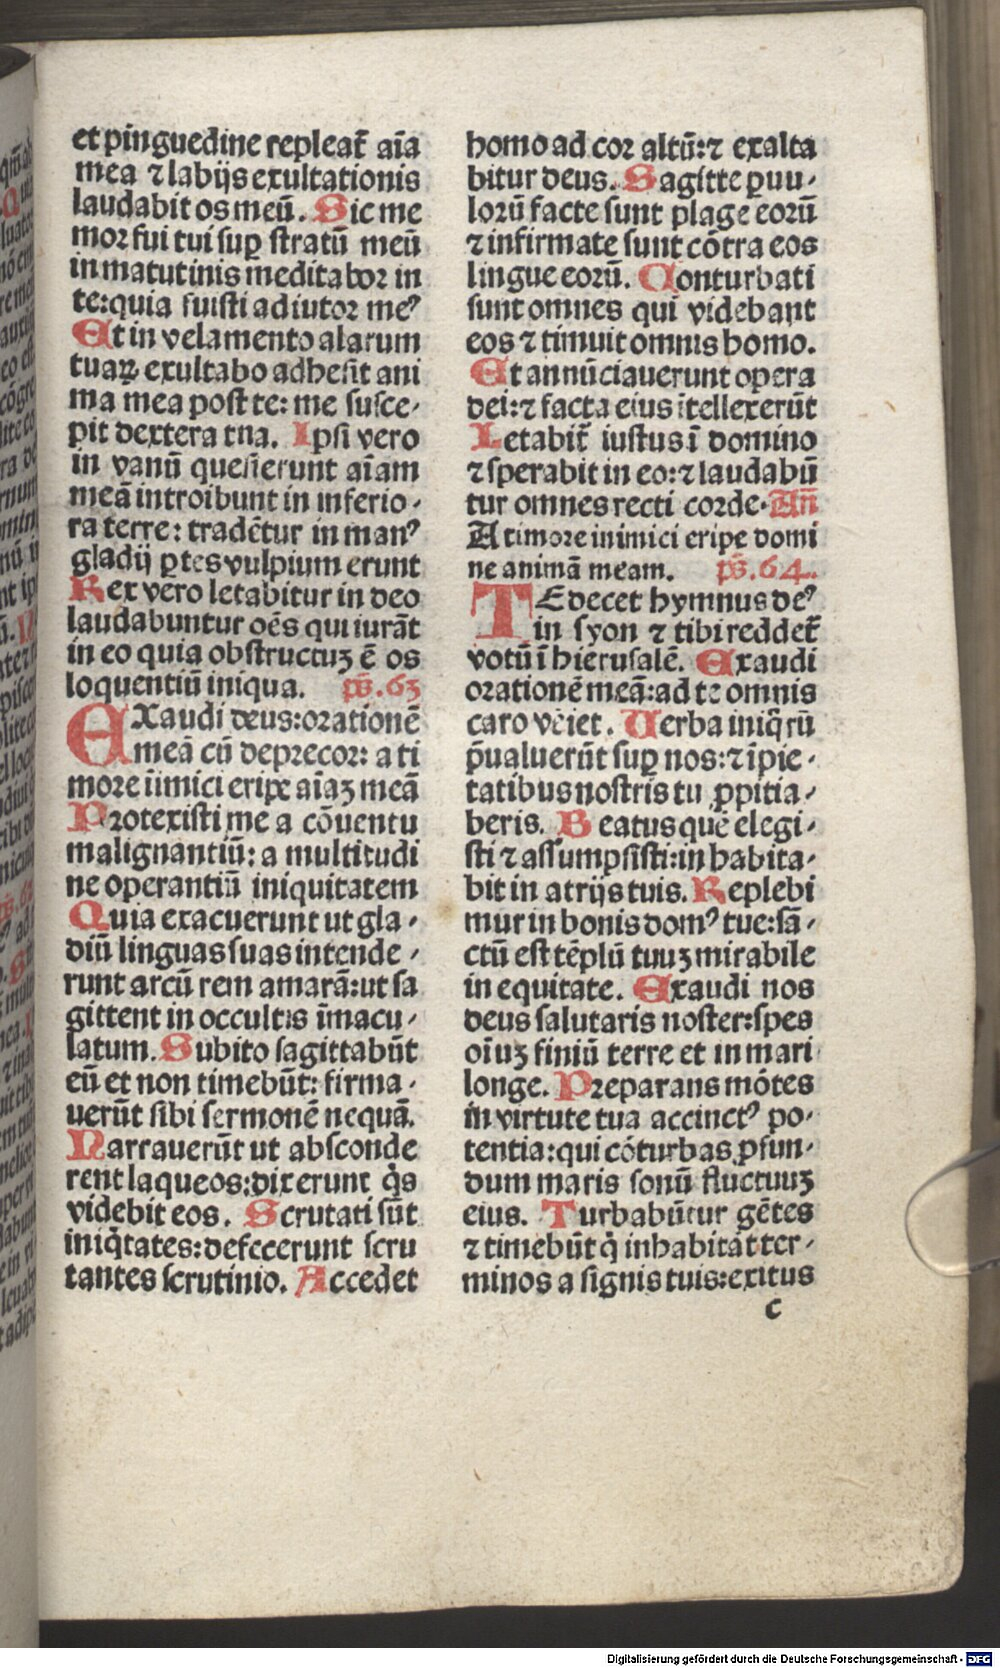 et pinguedine repleat᷑ aīa
mea ⁊ labijs exultationis
laudabit os meū. Sic me
mor fui tui suꝑ stratū meū
in matutinis meditabor in
te:quia fuisti adiutor meꝰ
Et in velamento alarum
tuaꝝ exultabo adhesit ani
ma mea post te: me susce⸗
pit dextera tua. Ipsi vero
in vanū quesierunt aīam
meā introibunt in inferio⸗
ra terre: tradētur in manꝰ
gladij ꝑtes vulpium erunt
Rex vero letabitur in deo
laudabuntur oēs qui iurāt
in eo quia obstructuꝫ ē os
loquentiū iniqua. pš.63
EXaudi deus:orationē
meā cū deprecor: a ti
more īimici eripe aīaꝫ meā
Protexisti me a cōuentu
malignantiū: a multitudi
ne operantiū iniquitatem
Quia exacuerunt ut gla⸗
diū linguas suas intende⸗
runt arcū rem amarā:ut sa
gittent in occultis īmacu⸗
latum. Subito sagittabūt
eū et non timebūt: firma⸗
uerūt sibi sermonē nequā.
Narrauerūt ut absconde
rent laqueos:dixerunt q̇s
videbit eos. Scrutati sūt
iniq̇tates:defecerunt scru
tantes scrutinio. Accedet
homo ad cor altū:⁊ exalta
bitur deus. Sagitte ꝑuu⸗
lorū facte sunt plage eorū
⁊ infirmate sunt cōtra eos
lingue eorū. Conturbati
sunt omnes qui videbant
eos ⁊ timuit omnis homo.
Et annūciauerunt opera
dei:⁊ facta eius ītellexerūt
Letabit᷑ iustus ī domino
⁊ sperabit in eo:⁊ laudabū
tur omnes recti corde. Añ
A timore inimici eripe domi
ne animā meam. pš.64.
TE decet hymnus deꝰ
in syon ⁊ tibi reddet᷑
votū ī hierusalē. Exaudi
orationē meā:ad te omnis
caro vēiet. Uerba iniq̇rū
p̄ualuerūt suꝑ nos:⁊ īpie⸗
tatibus nostris tu ꝓpitia⸗
beris. Beatus quē elegi⸗
sti ⁊ assumpsisti:inhabita⸗
bit in atrijs tuis. Replebi
mur in bonis domꝰ tue:sā⸗
ctū est tēplū tuuꝫ mirabile
in equitate. Exaudi nos
deus salutaris noster:spes
oīuꝫ finiū terre et in mari
longe. Preparans mōtes
in virtute tua accinctꝰ po⸗
tentia:qui cōturbas ꝓfun⸗
dum maris sonū fluctuuꝫ
eius. Turbabūtur gētes
⁊ timebūt q̇ inhabitāt ter⸗
minos a signis tuis:exitus
c
Digitalisierung gefördert durch die Deutsche Forschungsgemeinschaft - DFG